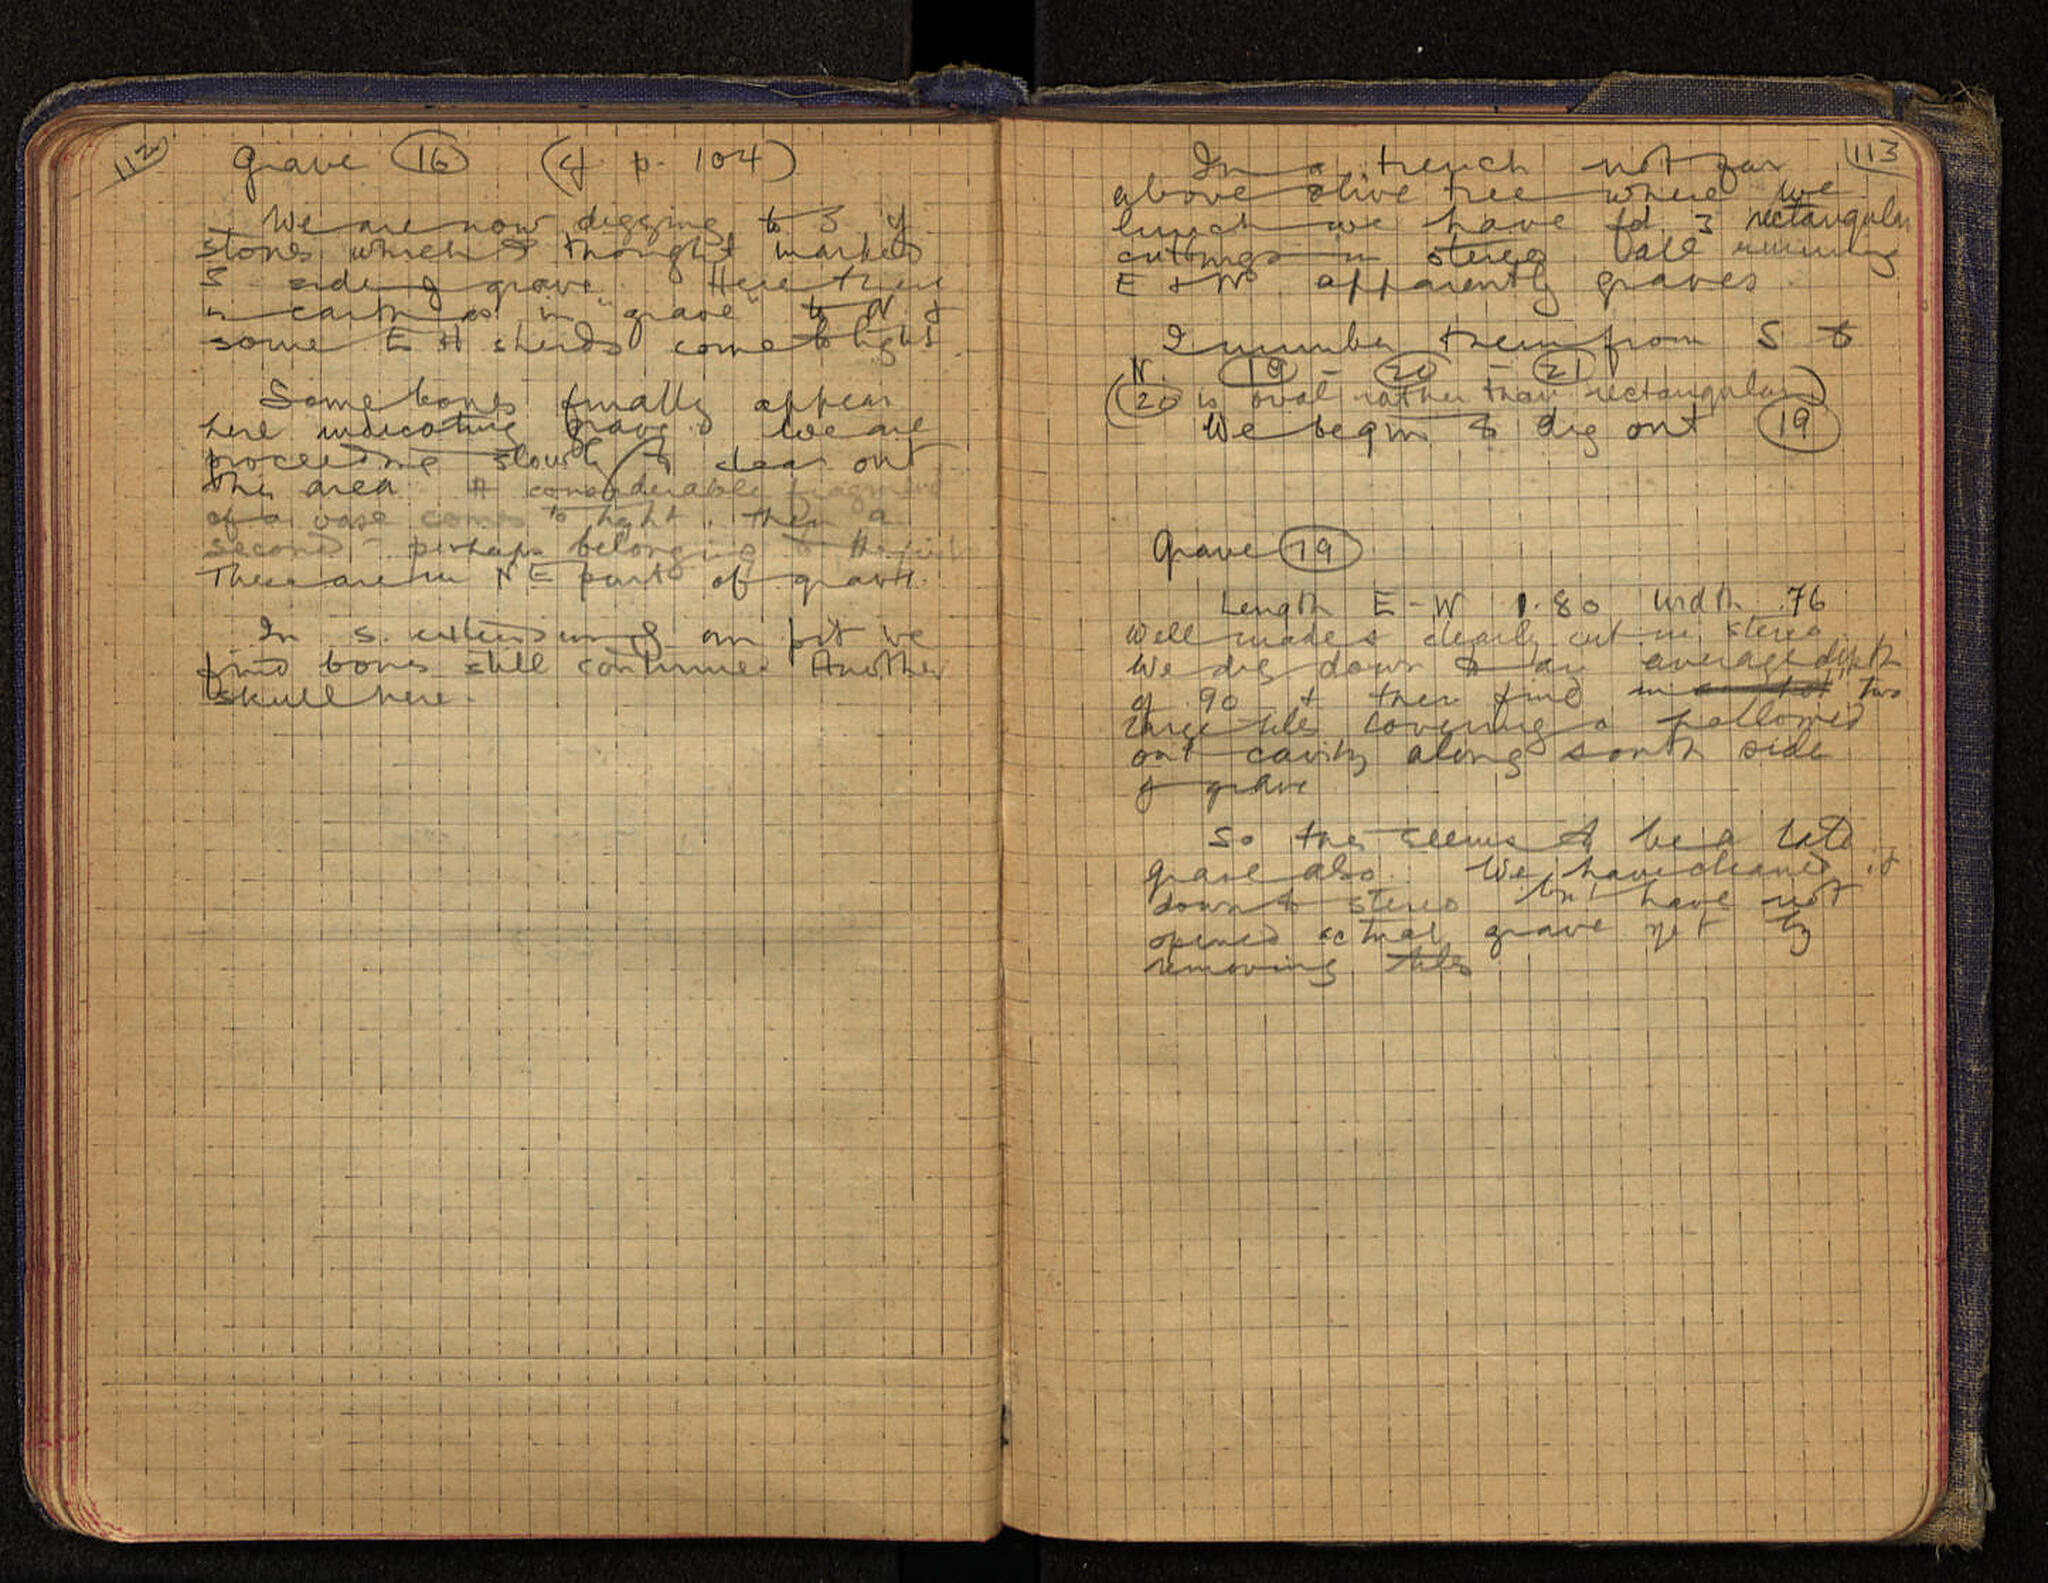 112
Grave 16 (cf. p. 104)
We are now digging to S of
stones which I thought marked
S side of grave. Here there
is earth as in "grave" to N &
some E H sherds come to light.
Some bones finally appear
here indicating grave. We are
proceeding slowly to clear out
this area. A considerable fragment
of a vase comes to light, then a
second - perhaps belonging to the first
These are in NE part of grave.
In S. extension of our pit we
find bones still continue. Another
skull here.
113
In a trench not far
above olive tree where we
lunch we have fd 3 rectangular
cuttings in stereo (all running
E & W) apparently graves.
I number them from S to
N. 19 - 20 - 21
(20 is oval rather than rectangular)
We begin to dig out 19
Grave 19
Length E-W 1.80 Width .76
Well made & clearly cut in stereo
We dig down to an average depth
of .90 & then find two
large tiles covering a hollowed
out cavity along south side
of grave
So this seems to be a late
grave also. We have cleaned it
down to stereo but have not
opened actual grave yet by
removing tiles